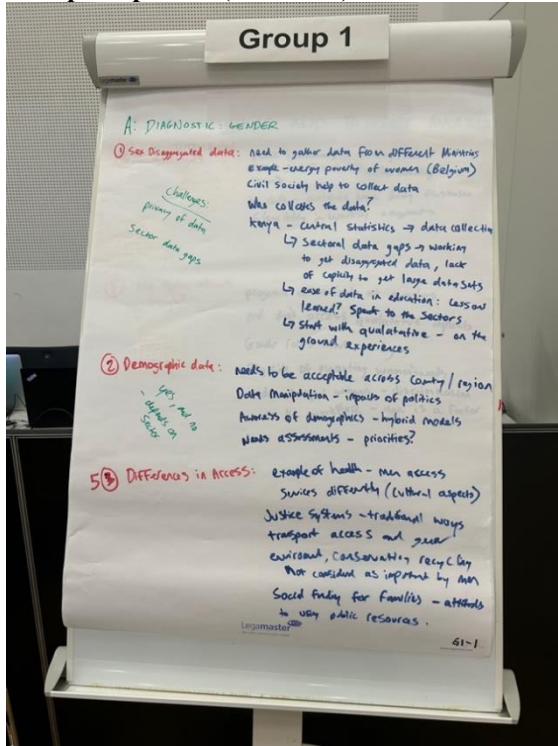 Group 1
Legamaster
A: DIAGNOSTIC: GENDER
① Sex Disaggregated data: need to gather data from different Ministries
example - energy poverty of women (Belgium)
Civil society help to collect data
Who collates the data?
Kenya - central statistics → data collection
↳ Sectoral data gaps → working
to get disaggregated data, lack
of capicity to get large data sets
↳ ease of data in education: Lesson
learned? Speak to the Sectors
↳ Start with qualatative - on the
ground experiences
Challenges:
privacy of data
Sector data gaps
② Demographic data: needs to be acceptable across county / region
Data manipulation - impacts of politics
Awareness of demographics - hybrid models
Needs assessments - priorities?
yes, and no
- depends on
Sector
5 ③ Differences in Access: example of health - men access
services differently (cultural aspects)
Justice Systems - traditional ways
transport access and
enviroment, conservation recycling
Not considered as important by men
Social funding for families - attitudes
to using public resources.
Legamaster
G1-1